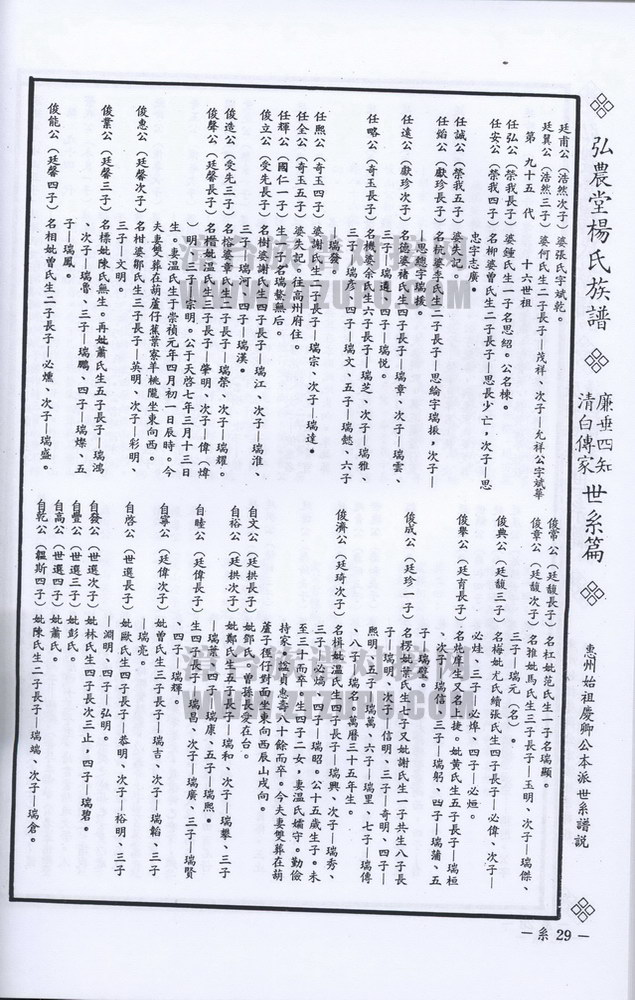 弘農堂楊氏族譜
廉垂四知
清白傳家
世系篇
惠州始祖慶卿公本派世系譜説
廷甫公（浩然次子）婆張氏字斌乾。
廷翼公（浩然三子）婆何氏生二子長子—茂祥、次子—允祥公字斌華
第九十五代 十六世祖
任弘公（榮我長子）婆鍾氏生一子名思紹。公名棟。
任安公（榮我四子）名柳婆曾氏生二子長子—思長少亡，次子—思
忠字志廣
任誠公（榮我五子）婆失記。
任始公（獻珍長子）名杭婆李氏生二子長子—思綸字瑞振，次子—
—思聰字瑞援。
任遠公（獻珍次子）名德婆褚氏生四子長子—瑞章、次子—瑞雲、
三子—瑞遠、四子—瑞悦。
任略公（奇玉長子）名機婆余氏生六子長子—瑞芝、次子—瑞雅、
三子—瑞彥、四子—瑞文、五子—瑞懿、六子
—瑞發
任熙公（奇玉四子）婆謝氏生二子長子—瑞宗、次子—瑞達。
任全公（奇玉五子）婆失記。往高州府住。
任輝公（國仁一子）生一子名瑞鰲無后。
俊立公（受先長子）名樹婆謝氏生四子長子—瑞江、次子—瑞淮、
三子—瑞河、四子—瑞漢。
俊造公（受先三子）名榕婆章氏生二子長子—瑞榮、次子—瑞耀。
俊聲公（廷馨長子）名楷妣温氏生三子長子—榮明、次子—偉（煒
明）三子—宗明。公于天啓七年三月十三日
生。妻温氏生于崇禎元年四月初一日辰時。今
夫妻雙葬在葫蘆仔蕉葉寮羊桃隴坐東向西。
俊惠公（廷馨次子）名柑婆鄒氏生三子長子—英明、次子—彩明、
三子—文明。
俊業公（廷馨三子）名標妣陳氏無生。再妣蕭氏生五子長子—瑞鴻
、次子—瑞魯、三子—瑞鵬、四子—瑞燦、五
子—瑞鳳。
俊能公（廷馨四子）名相妣曾氏生二子長子—必爌、次子—瑞盛。
俊常公（廷馥長子）名杠妣范氏生一子名瑞顯。
俊章公（廷馥次子）名雅妣馬氏生三子長子—玉明、次子—瑞傑、
三子—瑞元（名）。
俊典公（廷馥三子）名梅妣尤氏續張氏生四子長子—必偉、次子—
必烓、三子—必煒、四子—必烜。
俊舉公（廷育長子）名炖庠生又名上捷。妣黄氏生五子長子—瑞桓
、次子—瑞信、三子—瑞躬、四子—瑞蒲、五
子—瑞璧。
俟成公（廷珍一子）名楞妣葉氏生七子又妣謝氏生一子共生八子長
子—瑞明、次子—信明、三子—奇明、四子—
熙明、五子—瑞萬、六子—瑞里、七子—瑞傳
、八子—瑞名。萬曆三十五年生。
俊濟公（廷琦次子）名楫妣温氏生四子長子—瑞興、次子—瑞秀、
三子—必熇、四子—瑞昭。公十五歲生子。未
至三十而卒。生四子二女，妻温氏孀守。勤儉
持家，諡貞惠壽八十餘而卒。今夫妻雙葬在葫
蘆子徑仔對面坐東向西辰山戌向。
自文公（廷拱長子）妣鄧氏，曾孫長受在台。
自裕公（廷拱次子）妣鄭氏生五子長子—瑞和、次子—瑞攀、三子
—瑞葉、四子—瑞康、五子—瑞熙。
自睦公（廷偉長子）生四子長子—瑞昌、次子—瑞廣、三子—瑞賢
、四子—瑞輝。
自寧公（廷偉次子）妣曾氏生三子長子—瑞吉、次子—瑞韜、三子
—瑞亮。
自啓公（世選長子）妣歐氏生四子長子—恭明、次子—裕明、三子
—淵明、四子—弘明。
自發公（世選次子）妣林氏生四子長次三止，四子—瑞碧。
自豐公（世選三子）妣彭氏。
自高公（世選四子）妣蕭氏。
自乾公（螽斯四子）妣陳氏生二子長子—瑞端、次子—瑞倉。
— 系 29 —